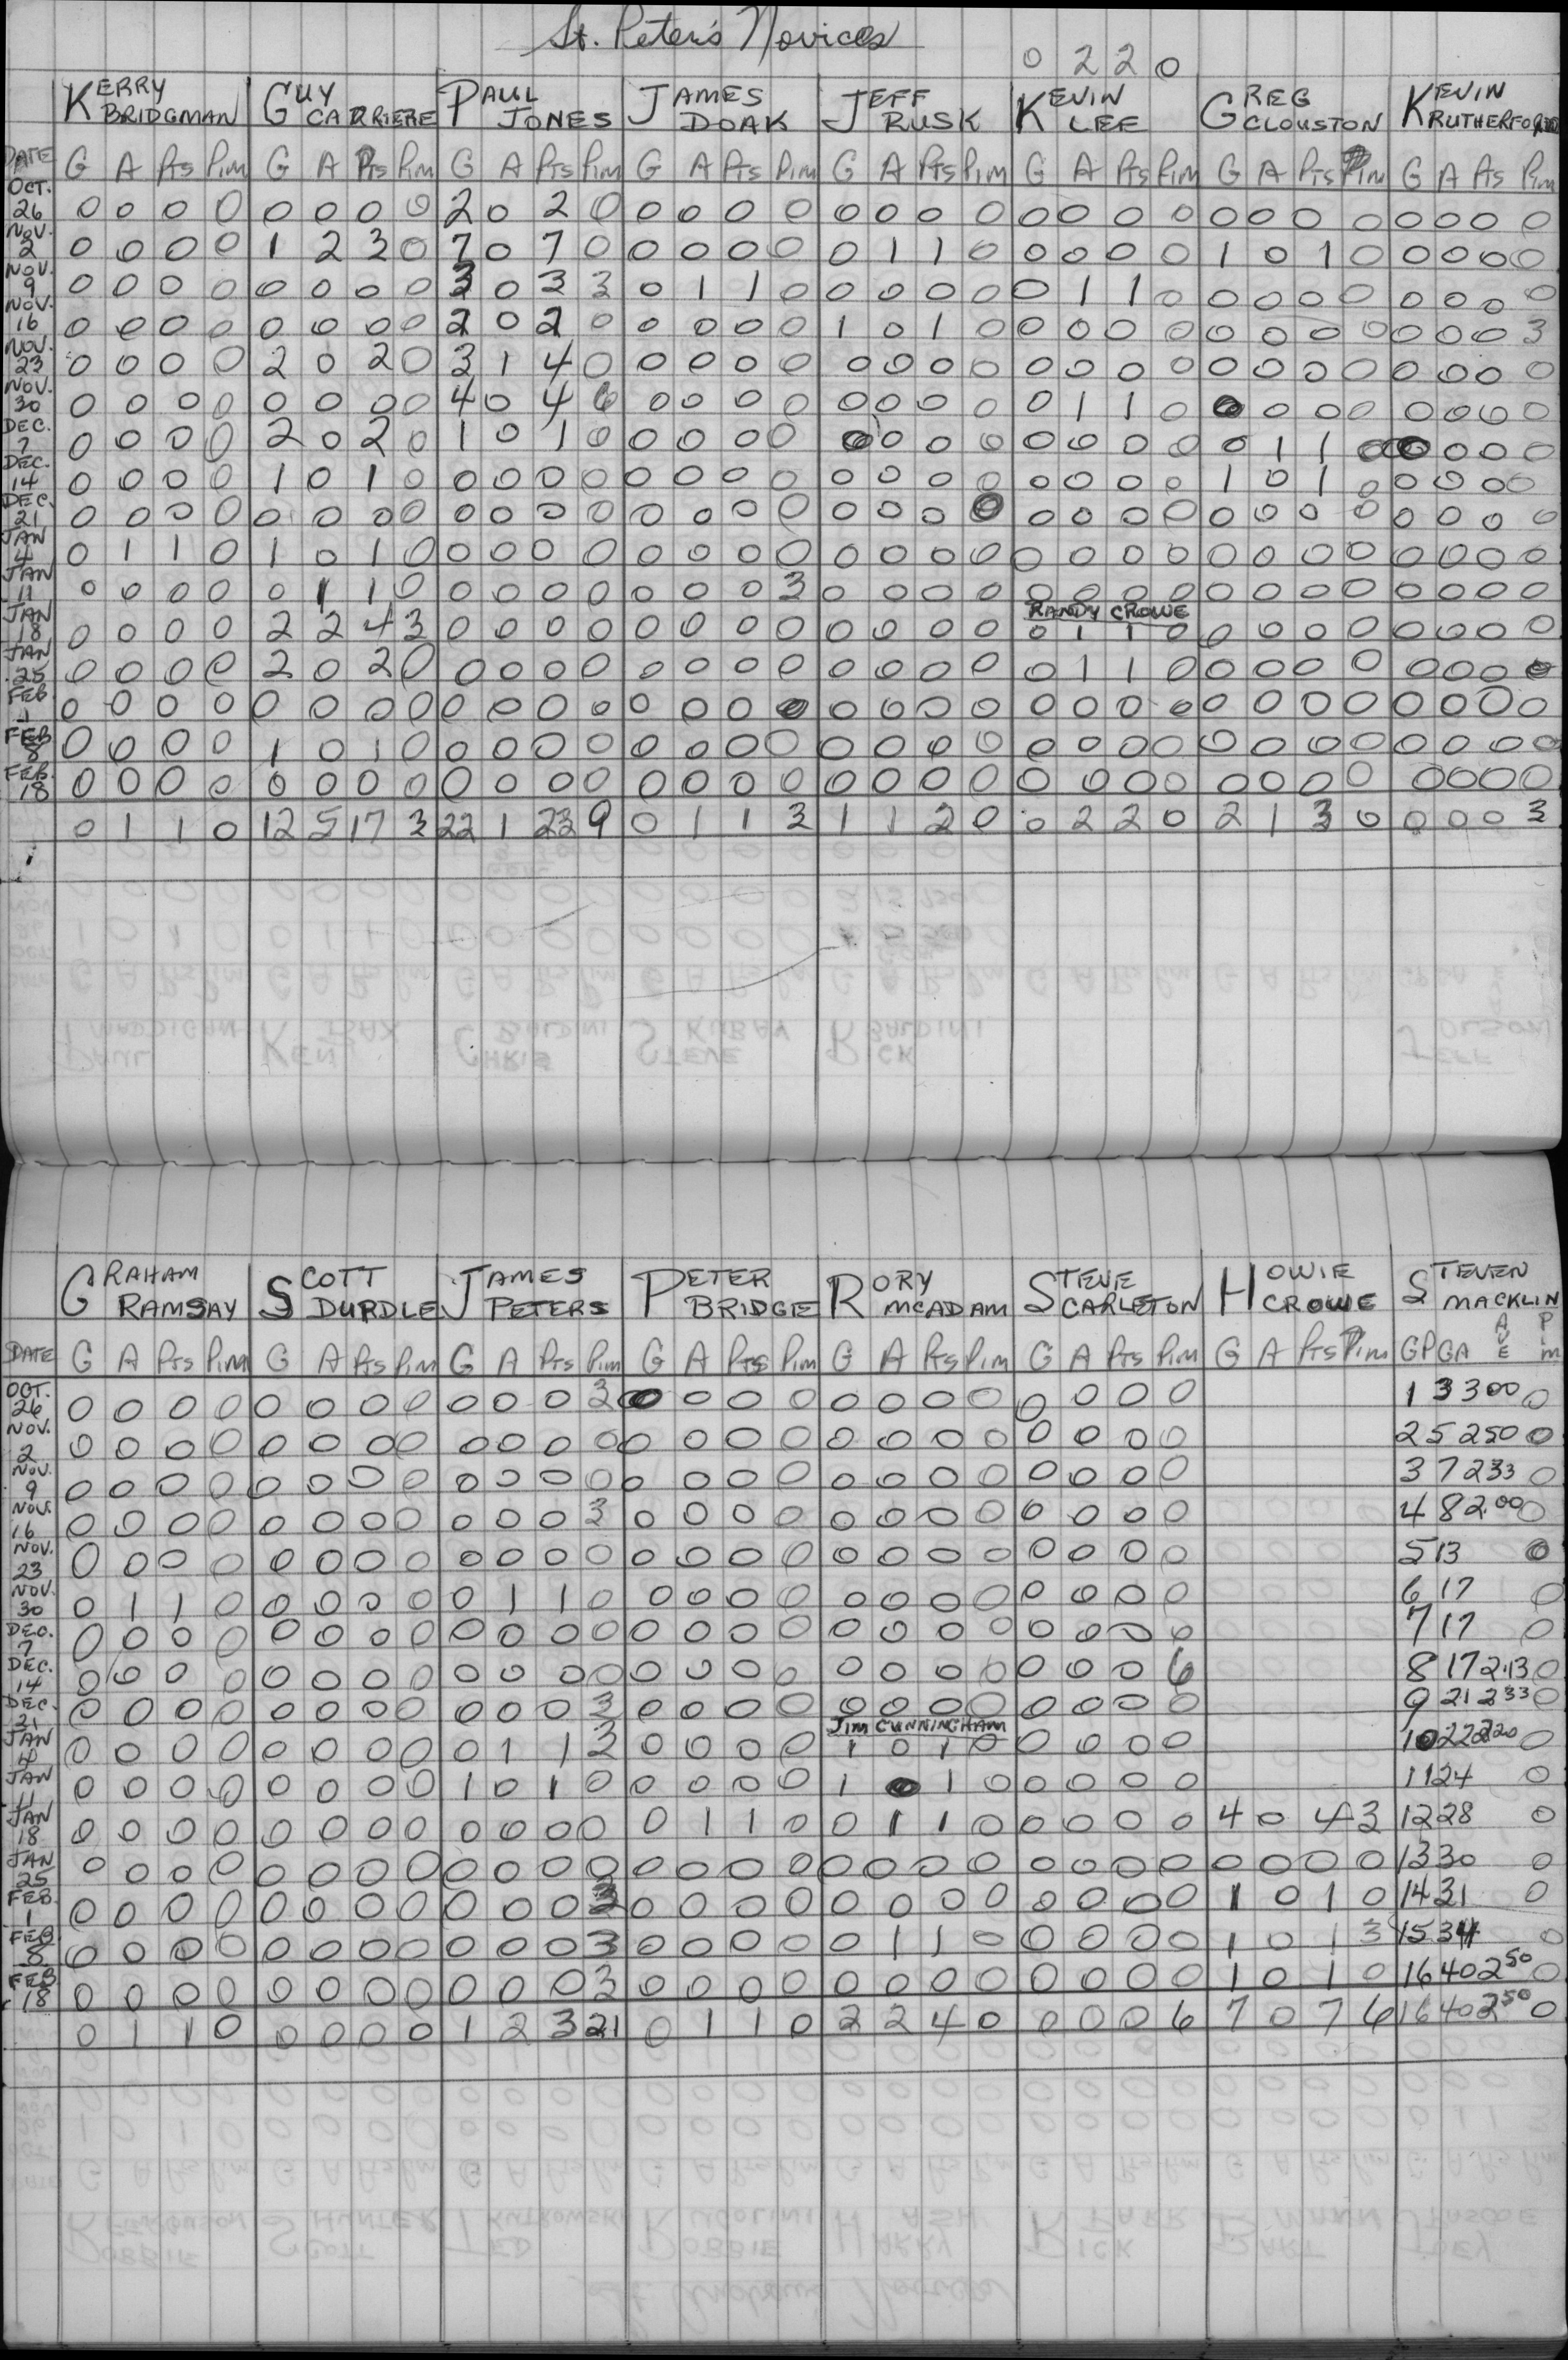 St. Peter's Novices
0 2 2 0
KERRY BRIDGMAN GUY CARRIERE PAUL JONES JAMES DOAK JEFF RUSK KEVIN LEE GREG CLOUSTON KEVIN RUTHERFORD
DATE G A Pts Pim G A Pts Pim G A Pts Pim G A Pts Pim G A Pts Pim G A Pts Pim G A Pts Pim G A Pts Pim
OCT. 26 0 0 0 0 0 0 0 0 2 0 2 0 0 0 0 0 0 0 0 0 0 0 0 0 0 0 0 0 0 0 0 0
NOV. 2 0 0 0 0 1 2 3 0 7 0 7 0 0 0 0 0 0 1 1 0 0 0 0 0 1 0 1 0 0 0 0 0
NOV. 9 0 0 0 0 0 0 0 0 3 0 3 3 0 1 1 0 0 0 0 0 0 1 1 0 0 0 0 0 0 0 0 0
NOV. 16 0 0 0 0 0 0 0 0 2 0 2 0 0 0 0 0 1 0 1 0 0 0 0 0 0 0 0 0 0 0 0 3
NOV. 23 0 0 0 0 2 0 2 0 3 1 4 0 0 0 0 0 0 0 0 0 0 0 0 0 0 0 0 0 0 0 0 0
NOV. 30 0 0 0 0 0 0 0 0 4 0 4 6 0 0 0 0 0 0 0 0 0 1 1 0 0 0 0 0 0 0 0 0
DEC. 7 0 0 0 0 2 0 2 0 1 0 1 0 0 0 0 0 0 0 0 0 0 0 0 0 0 1 1 0 0 0 0 0
DEC. 14 0 0 0 0 1 0 1 0 0 0 0 0 0 0 0 0 0 0 0 0 0 0 0 0 1 0 1 0 0 0 0 0
DEC. 21 0 0 0 0 0 0 0 0 0 0 0 0 0 0 0 0 0 0 0 0 0 0 0 0 0 0 0 0 0 0 0 0
JAN 4 0 1 1 0 1 0 1 0 0 0 0 0 0 0 0 0 0 0 0 0 0 0 0 0 0 0 0 0 0 0 0 0
JAN 11 0 0 0 0 0 1 1 0 0 0 0 0 0 0 0 3 0 0 0 0 0 0 0 0 0 0 0 0 0 0 0 0
RANDY CROWE
JAN 18 0 0 0 0 2 2 4 3 0 0 0 0 0 0 0 0 0 0 0 0 0 1 1 0 0 0 0 0 0 0 0 0
JAN 25 0 0 0 0 2 0 2 0 0 0 0 0 0 0 0 0 0 0 0 0 0 1 1 0 0 0 0 0 0 0 0 0
FEB 1 0 0 0 0 0 0 0 0 0 0 0 0 0 0 0 0 0 0 0 0 0 0 0 0 0 0 0 0 0 0 0 0
FEB 8 0 0 0 0 1 0 1 0 0 0 0 0 0 0 0 0 0 0 0 0 0 0 0 0 0 0 0 0 0 0 0 0
FEB. 18 0 0 0 0 0 0 0 0 0 0 0 0 0 0 0 0 0 0 0 0 0 0 0 0 0 0 0 0 0 0 0 0
0 1 1 0 12 5 17 3 22 1 23 9 0 1 1 3 1 1 2 0 0 2 2 0 2 1 3 0 0 0 0 3
GRAHAM RAMSAY SCOTT DURDLE JAMES PETERS PETER BRIDGE RORY MCADAM STEVE CARLETON HOWIE CROWE STEVEN MACKLIN
DATE G A Pts Pim G A Pts Pim G A Pts Pim G A Pts Pim G A Pts Pim G A Pts Pim G A Pts Pim GP GA AVE PIM
OCT. 26 0 0 0 0 0 0 0 0 0 0 0 3 0 0 0 0 0 0 0 0 0 0 0 0 1 3 300 0
NOV. 2 0 0 0 0 0 0 0 0 0 0 0 0 0 0 0 0 0 0 0 0 0 0 0 0 2 5 250 0
NOV. 9 0 0 0 0 0 0 0 0 0 0 0 0 0 0 0 0 0 0 0 0 0 0 0 0 3 7 233 0
NOV. 16 0 0 0 0 0 0 0 0 0 0 0 3 0 0 0 0 0 0 0 0 0 0 0 0 4 8 2.00 0
NOV. 23 0 0 0 0 0 0 0 0 0 0 0 0 0 0 0 0 0 0 0 0 0 0 0 0 5 13 0
NOV. 30 0 1 1 0 0 0 0 0 0 1 1 0 0 0 0 0 0 0 0 0 0 0 0 0 6 17 0
DEC. 7 0 0 0 0 0 0 0 0 0 0 0 0 0 0 0 0 0 0 0 0 0 0 0 0 7 17 0
DEC. 14 0 0 0 0 0 0 0 0 0 0 0 0 0 0 0 0 0 0 0 0 0 0 0 6 8 17 2.13 0
DEC. 21 0 0 0 0 0 0 0 0 0 0 0 3 0 0 0 0 0 0 0 0 0 0 0 0 9 21 233 0
JIM CUNNINGHAM
JAN 4 0 0 0 0 0 0 0 0 0 1 1 3 0 0 0 0 1 0 1 0 0 0 0 0 10 22 220 0
JAN 11 0 0 0 0 0 0 0 0 1 0 1 0 0 0 0 0 1 0 1 0 0 0 0 0 11 24 0
JAN 18 0 0 0 0 0 0 0 0 0 0 0 0 0 1 1 0 0 1 1 0 0 0 0 0 4 0 4 3 12 28 0
JAN 25 0 0 0 0 0 0 0 0 0 0 0 0 0 0 0 0 0 0 0 0 0 0 0 0 0 0 0 0 13 30 0
FEB. 1 0 0 0 0 0 0 0 0 0 0 0 3 0 0 0 0 0 0 0 0 0 0 0 0 1 0 1 0 14 31 0
FEB 8 0 0 0 0 0 0 0 0 0 0 0 3 0 0 0 0 0 1 1 0 0 0 0 0 1 0 1 3 15 34 0
FEB 18 0 0 0 0 0 0 0 0 0 0 0 3 0 0 0 0 0 0 0 0 0 0 0 0 1 0 1 0 16 40 2 50 0
0 1 1 0 0 0 0 0 1 2 3 21 0 1 1 0 2 2 4 0 0 0 0 6 7 0 7 6 16 40 2 50 0